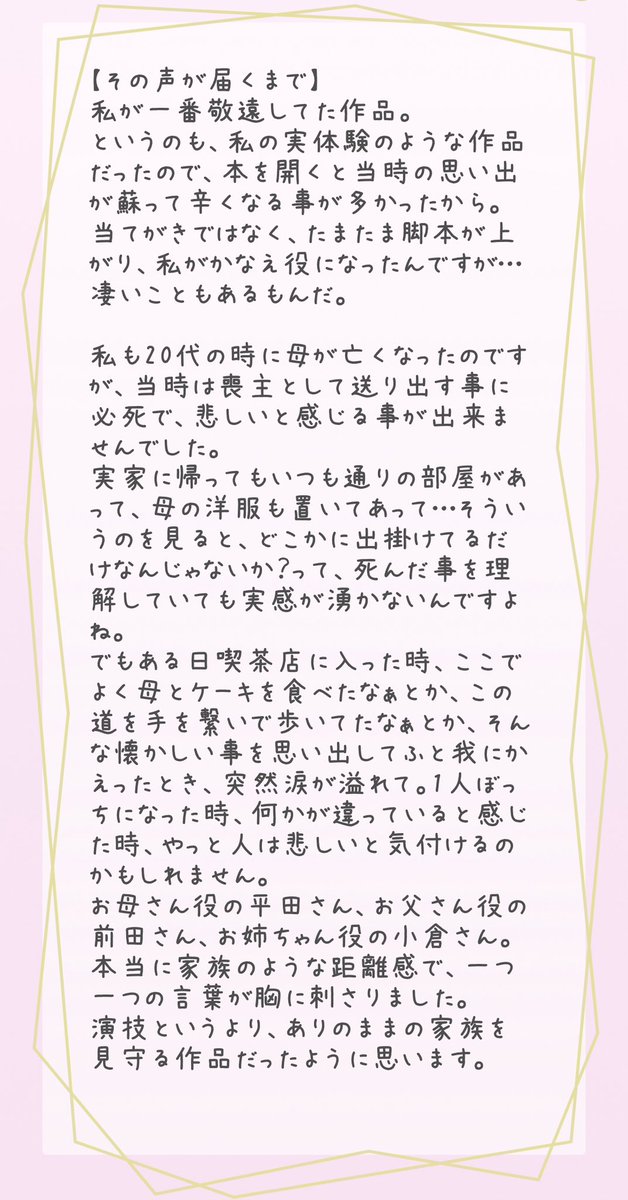 【その声が届くまで】
私が一番敬遠してた作品。
というのも、私の実体験のような作品
だったので、本を開くと当時の思い出
が蘇って辛くなる事が多かったから。
当てがきではなく、たまたま脚本が上
がり、私がかなえ役になったんですが…
凄いこともあるもんだ。
私も20代の時に母が亡くなったのです
が、当時は喪主として送り出す事に
必死で、悲しいと感じる事が出来ま
せんでした。
実家に帰ってもいつも通りの部屋があ
って、母の洋服も置いてあって…そうい
うのを見ると、どこかに出掛けてるだ
けなんじゃないか?って、死んだ事を理
解していても実感が湧かないんですよ
ね。
でもある日喫茶店に入った時、ここで
よく母とケーキを食べたなぁとか、この
道を手を繋いで歩いてたなぁとか、そん
な懐かしい事を思い出してふと我にか
えったとき、突然涙が溢れて。1人ぼっ
ちになった時、何かが違っていると感じ
た時、やっと人は悲しいと気付けるの
かもしれません。
お母さん役の平田さん、お父さん役の
前田さん、お姉ちゃん役の小倉さん。
本当に家族のような距離感で、一つ
一つの言葉が胸に刺さりました。
演技というより、ありのままの家族を
見守る作品だったように思います。